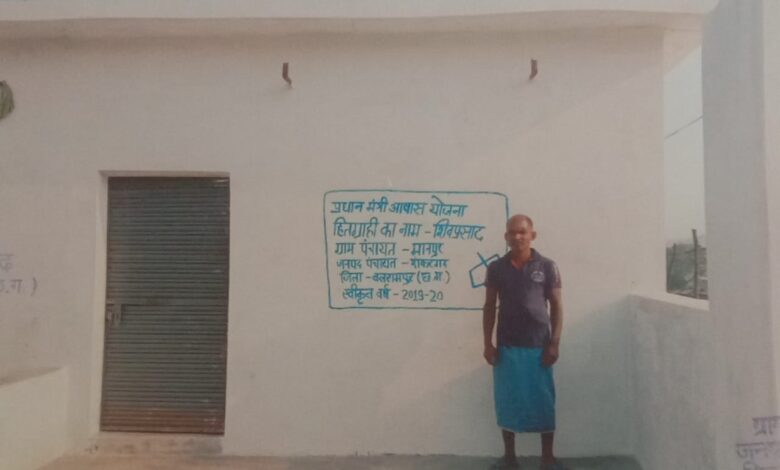 प्रधान मंत्री आवास योजना
हितग्राही का नाम - शिवप्रसाद
ग्राम पंचायत - मानपुर
जनपद पंचायत - शंकरगढ़
जिला - बलरामपुर (छ.ग.)
स्वीकृत वर्ष - 2019-20